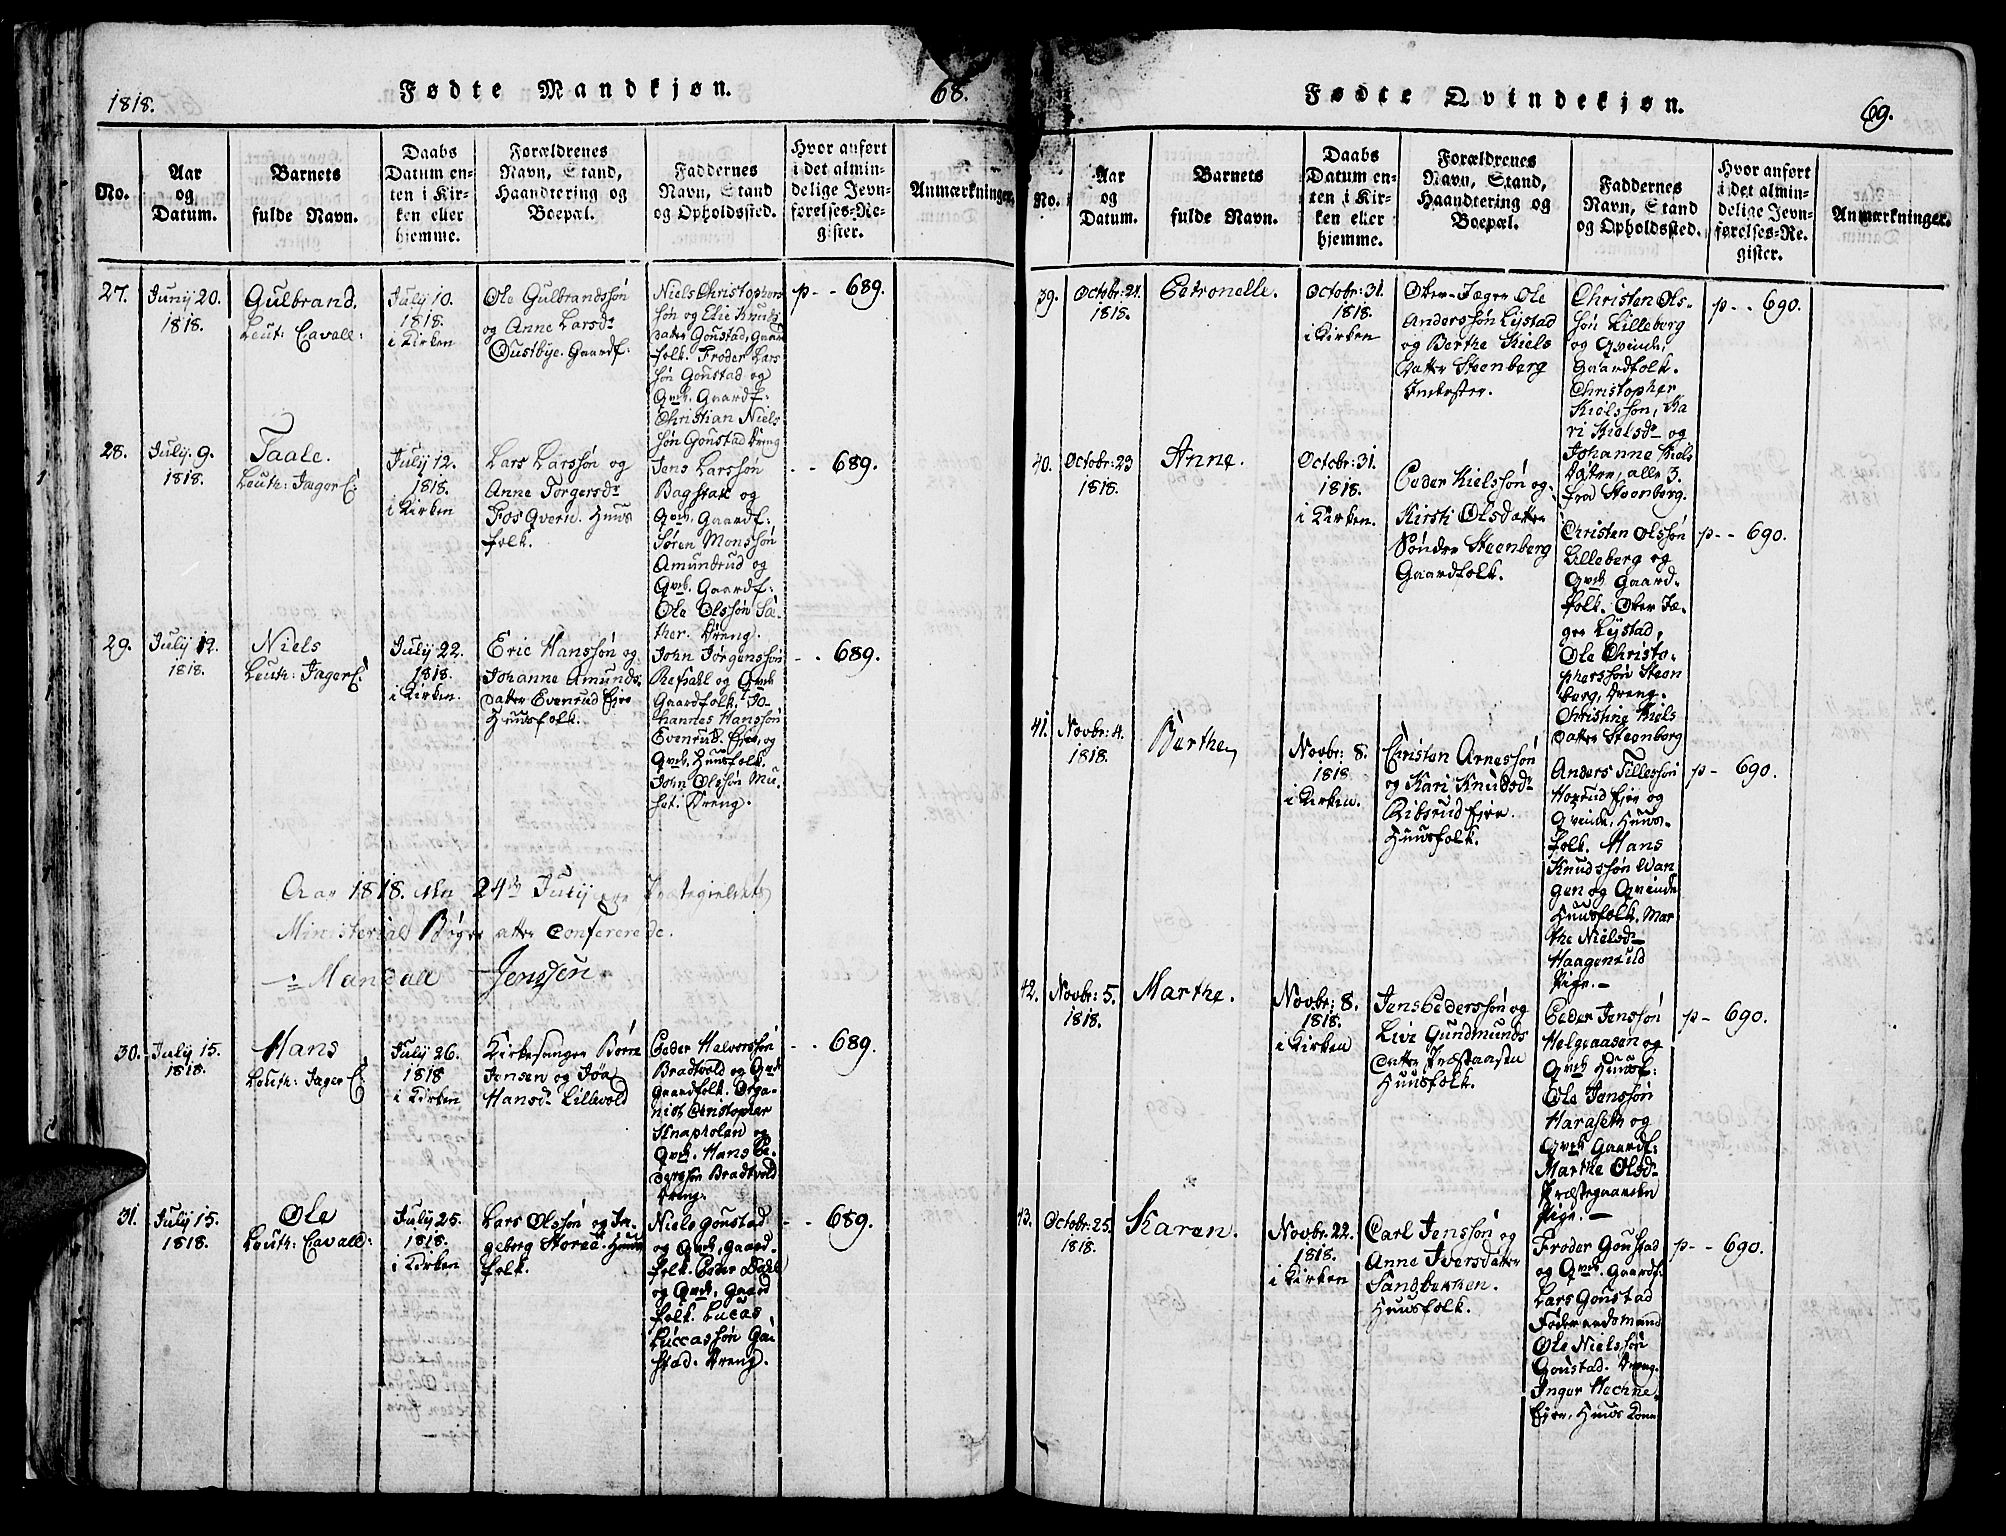 1818.
Fødte Mandkjøn.
68.
No.
Aar
og
Datum.
Barnets
fulde Navn.
Daabs
Datum en-
ten i Kir-
ken eller
hjemme.
Forældrenes
Navn, Stand,
Haandtering og
Boepæl.
Faddernes
Navn, Stand
og Opholdssted.
Hvor anført
i det almin-
delige Jevn-
førelses-Re-
gister.
Anmærkninger.
27.
Juny 20.
1818.
Gulbrand.
Leut: Cavall:
July 10.
1818.
i Kirken
Ole Gulbrandssøn
og Anne Larsdr
Oustbye. Gaardf:
Niels Christophers
søn og Elie Knuds
datter Gonstad, Gaard
folk. Froder Lars
søn Gonstad og
Qvde. Gaardf:
Christian Niels
søn Gonstad Dreng
p - - 689.
28.
July. 9.
1818.
Taale.
Leuth: JægerC:
July 12.
1818.
i Kirken
Lars Larssøn og
Anne Torgersdr
Fos Qvern. Huus
folk.
Jens Larssøn
Bagstad og
Qvde. Gaardf:
Søren Monssøn
Amundrud og
Qvde. Gaardf:
Ole Olssøn Sæ-
ther. Dreng.
- - 689.
29.
July 12.
1818.
Niels
Leuth: JægerC:
July 22.
1818.
i Kirken.
Eric Hanssøn og
Johanne Amunds-
datter Evenrud Ejre
Huusfolk.
John Jørgenssøn
Refsahl og Qvde
Gaardfolk, Jo-
hannes Hanssøn
Evenrud. Ejre, og
Qvde, Huusfolk.
John Olssøn Mu-
set. Dreng.
- - 689.
Aar 1818. den 24de July ere Præstegieldets
Ministerial Bøger atter Confererede.
Mandall Jenssen
30.
July 15.
1818.
Hans
Leuth: Jæger C:
July 26.
1818
i Kirken
Kirkesanger Børre
Jensen og Joa
Hansdr Lillevold
Peder Halvorssøn
Bradtvold og Qvde
Gaardfolk. Orga-
nist Christopher
Knapholen og
Qvde. Hans Pe-
derssøn Bradtvold
Dreng.
- - 689.
31.
July 15.
1818.
Ole
Leuth: Cavall:
July 25.
1818.
i Kirken
Lars Olssøn og In-
geborg Storee. Huus
folk.
Niels Gonstad
og Qvde, Gaard-
folk. Peder Dahl
og Qvde, Gaard
folk. Lucas
Luccassøn Gon-
stad. Dreng.
- - 689.
Fødte Qvindekjøn.
69.
No.
Aar
og
Datum.
Barnets
fulde Navn.
Daabs
Datum en-
ten i Kir-
ken eller
hjemme.
Forældrenes
Navn, Stand,
Haandtering og
Boepæl.
Faddernes
Navn, Stand
og Opholdssted.
Hvor anført
i det almin-
delige Jevn-
førelses-Re-
gister.
Anmærkninger.
39.
Octobr: 21.
1818.
Petronelle.
Octobr: 31.
1818.
i Kirken
Ober-Jæger Ole
Anderssøn Lystad
og Berthe Kiels
datter Steenberg
Inderster.
Christen Ols-
søn Lilleberg
og Qvinde,
Gaardfolk.
Christopher
Kielssøn, Ka
ri Kielsdr og
Johanne Kiels
datter, alle 3.
fra Steenberg.
p - - 690.
40.
Octobr: 23
1818.
Anne.
Octobr: 31.
1818.
i Kirken.
Peder Kielssøn og
Kirsti Olsdatter
Søndre Steenberg
Gaardfolk.
Christen Olssøn
Lilleberg og
Qvde Gaard-
folk. Ober Jæ-
ger Lystad,
Ole Christo-
pherssøn Steen
berg, Dreng.
Christine Kiels
datter Steenberg
p - - 690.
41.
Novbr: 4.
1818.
Berthe,
Novbr: 8.
1818
i Kirken.
Christen Arnessøn
og Kari Knudsdr
Ribsrud Ejre.
Huusfolk.
Anders Tillerssøn
Horrud Ejre og
Qvinde, Huus-
folk. Hans
Knudssøn Wan
gen og Qvinde
Huusfolk. Mar
the Nielsdr
Haagenrud
Pige. -
p - 690.
42.
Novbr: 5.
1818.
Marthe.
Novbr: 8.
1818.
i Kirken
Jens Pederssøn og
Live Gundmunds
datter Præstaasen
Huusfolk.
Peder Jenssøn
Helgeaasen og
Qvde Huusf:
Ole Jenssøn
Haraseth og
Qvde Gaardf:
Marthe Olsdr
Præstegaarden
Pige. -
p - 690.
43.
Octobr: 25.
1818.
Karen.
Novbr: 22.
1818.
i Kirken
Carl Jenssøn og
Anne Iversdatter
Sandbekken.
Huusfolk.
Froder Gonstad
og Qvde. Gaardf:
Lars Gonstad
Føderaadsmand
Ole Nielssøn
Gonstad. Dreng.
Inger Hechne-
Ejre, Huus Kone
p - - 690.